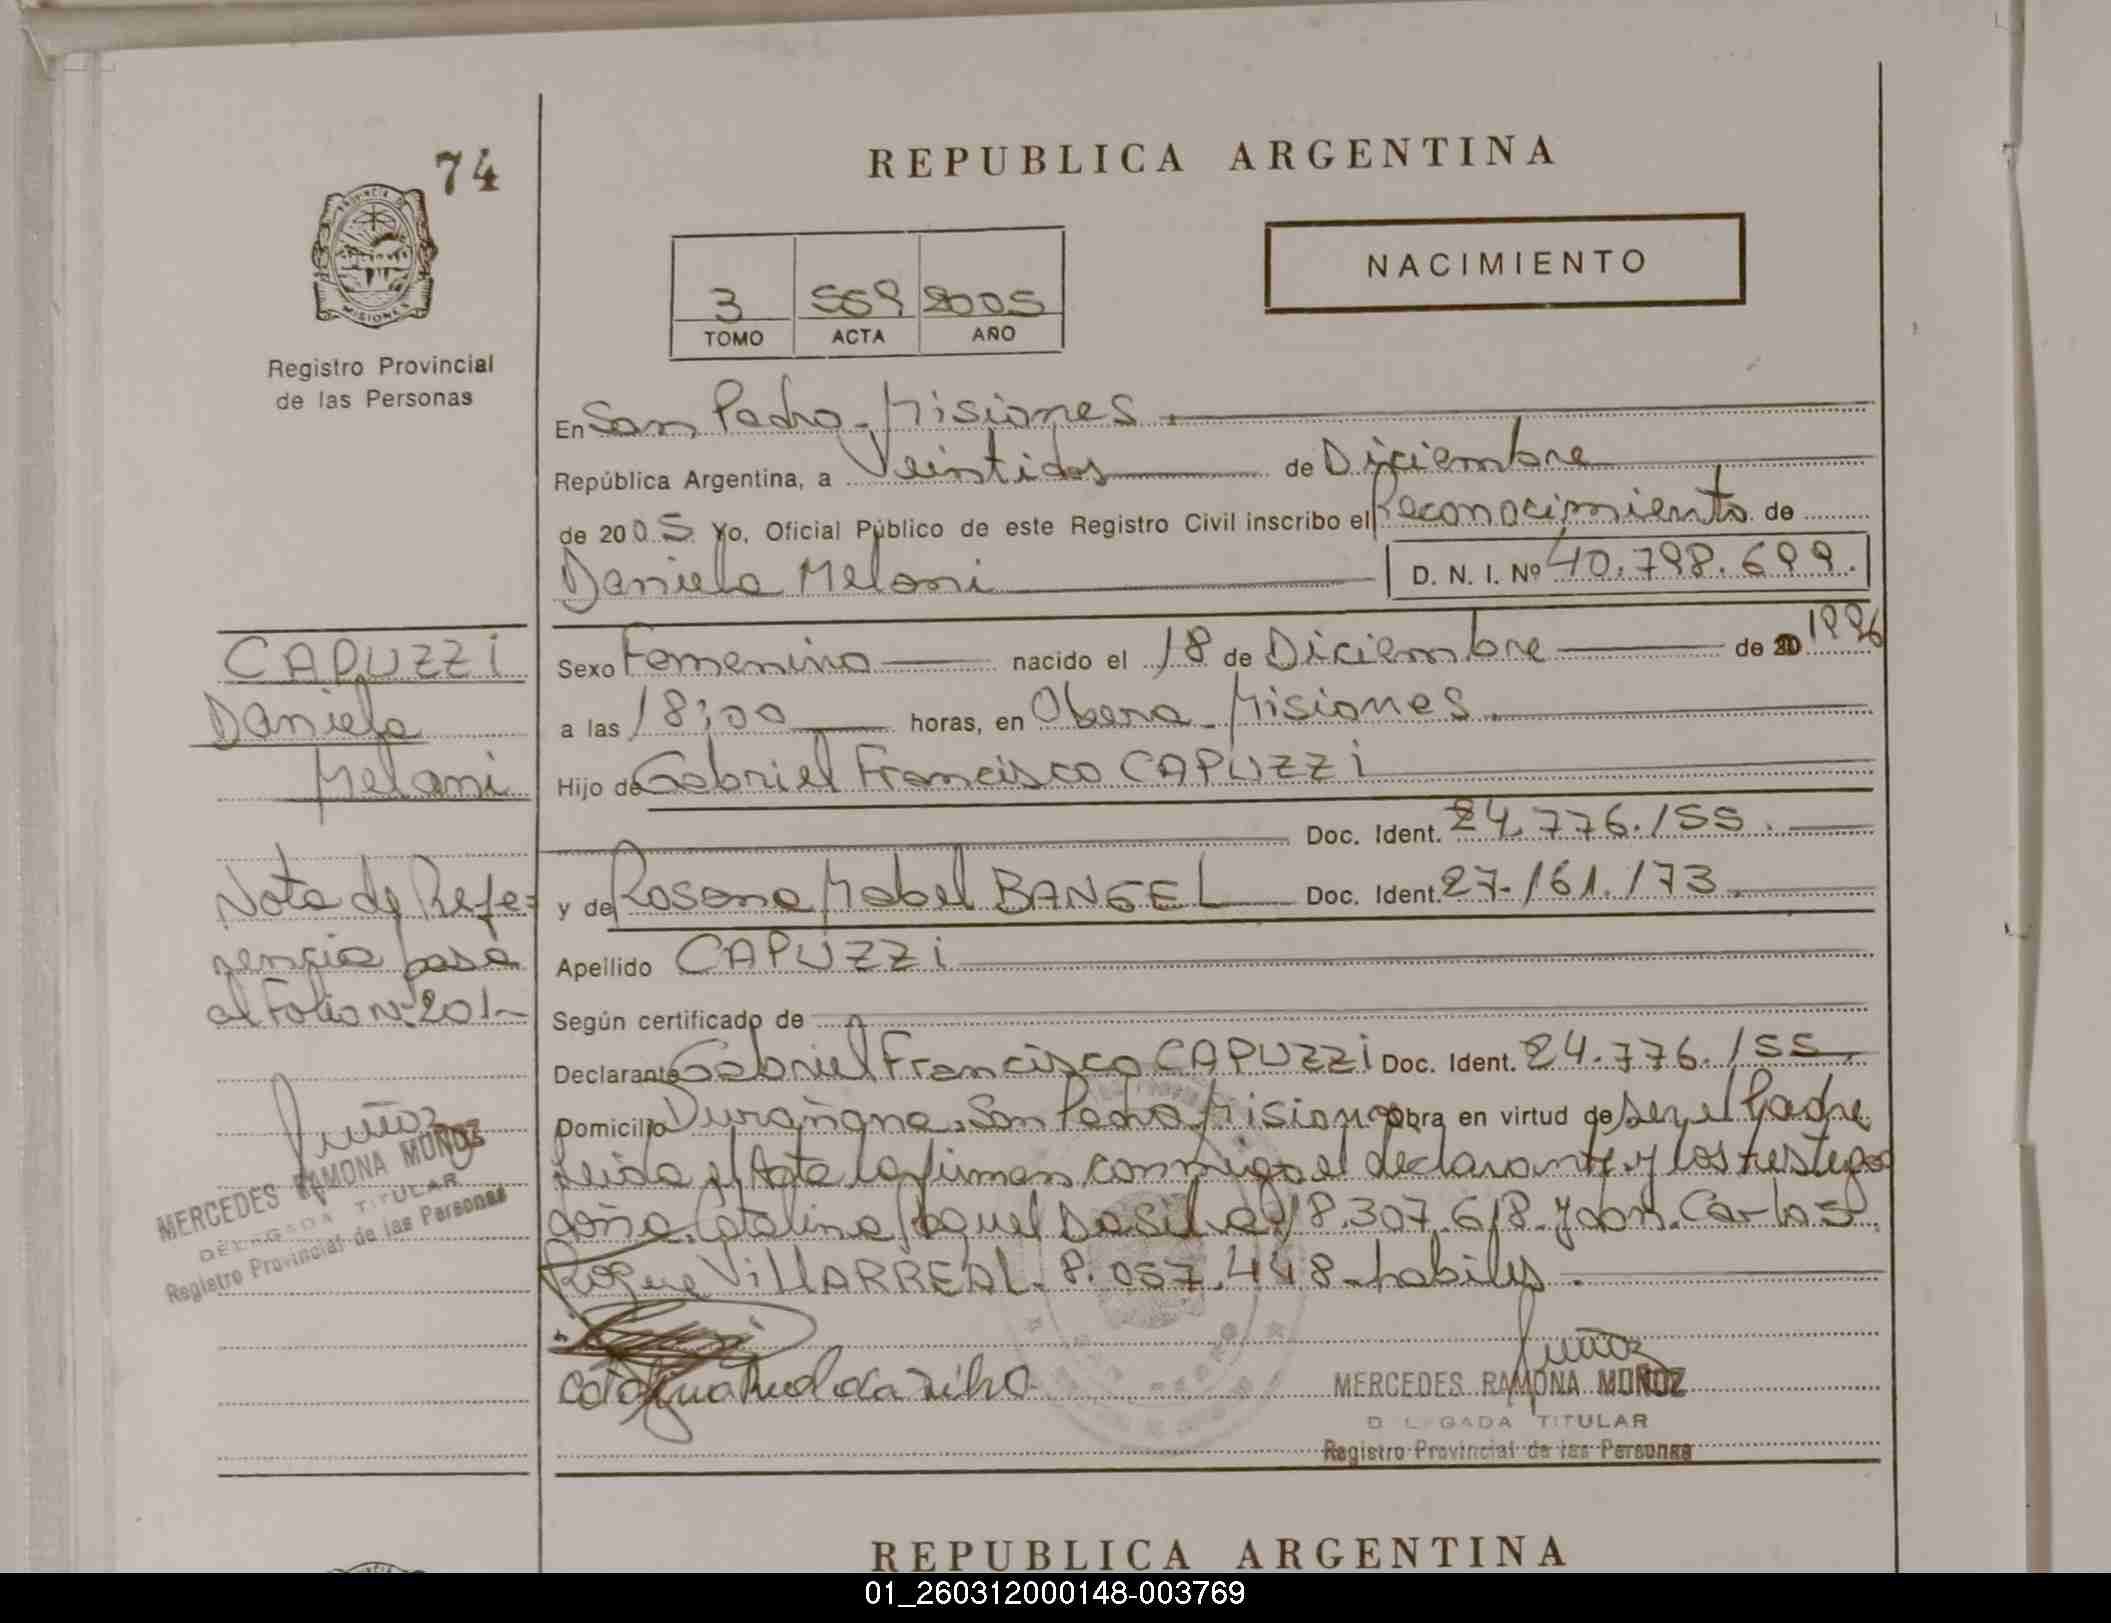 74
REPUBLICA ARGENTINA
NACIMIENTO
3 569 2005
TOMO ACTA AÑO
PROVINCIA DE
MISIONES
Registro Provincial
de las Personas
En San Pedro - Misiones.
República Argentina, a Veintidos de Diciembre
de 2005 Yo, Oficial Público de este Registro Civil inscribo el Reconocimiento de
Daniela Melani D. N. I. Nº 40.798.699.
CAPUZZI
Daniela
Melani
Sexo Femenino nacido el 18 de Diciembre de 20 1996
a las 18:00 horas, en Obera - Misiones.
Hijo de Gabriel Francisco CAPUZZI
Doc. Ident. 24.776.155.
y de Rosana Mabel BANGEL Doc. Ident. 27.161.173.
Apellido CAPUZZI
Según certificado de
Declarante Gabriel Francisco CAPUZZI Doc. Ident. 24.776.155.
Domicilio San Pedro Misiones obra en virtud de ser el Padre
Leida el Acta la firman conmigo el declarante y los testigos
doña Catalina Raquel Da Silva 18.307.618 y don Carlos
Roque VILLARREAL - 8.057.448 - habiles.
Nota de Refe-
rencia pasa
al Folio Nº 201-
Muñoz
MERCEDES RAMONA MUÑOZ
DELEGADA TITULAR
Registro Provincial de las Personas
Muñoz
MERCEDES RAMONA MUÑOZ
DELEGADA TITULAR
Registro Provincial de las Personas
REPUBLICA ARGENTINA
01_260312000148-003769